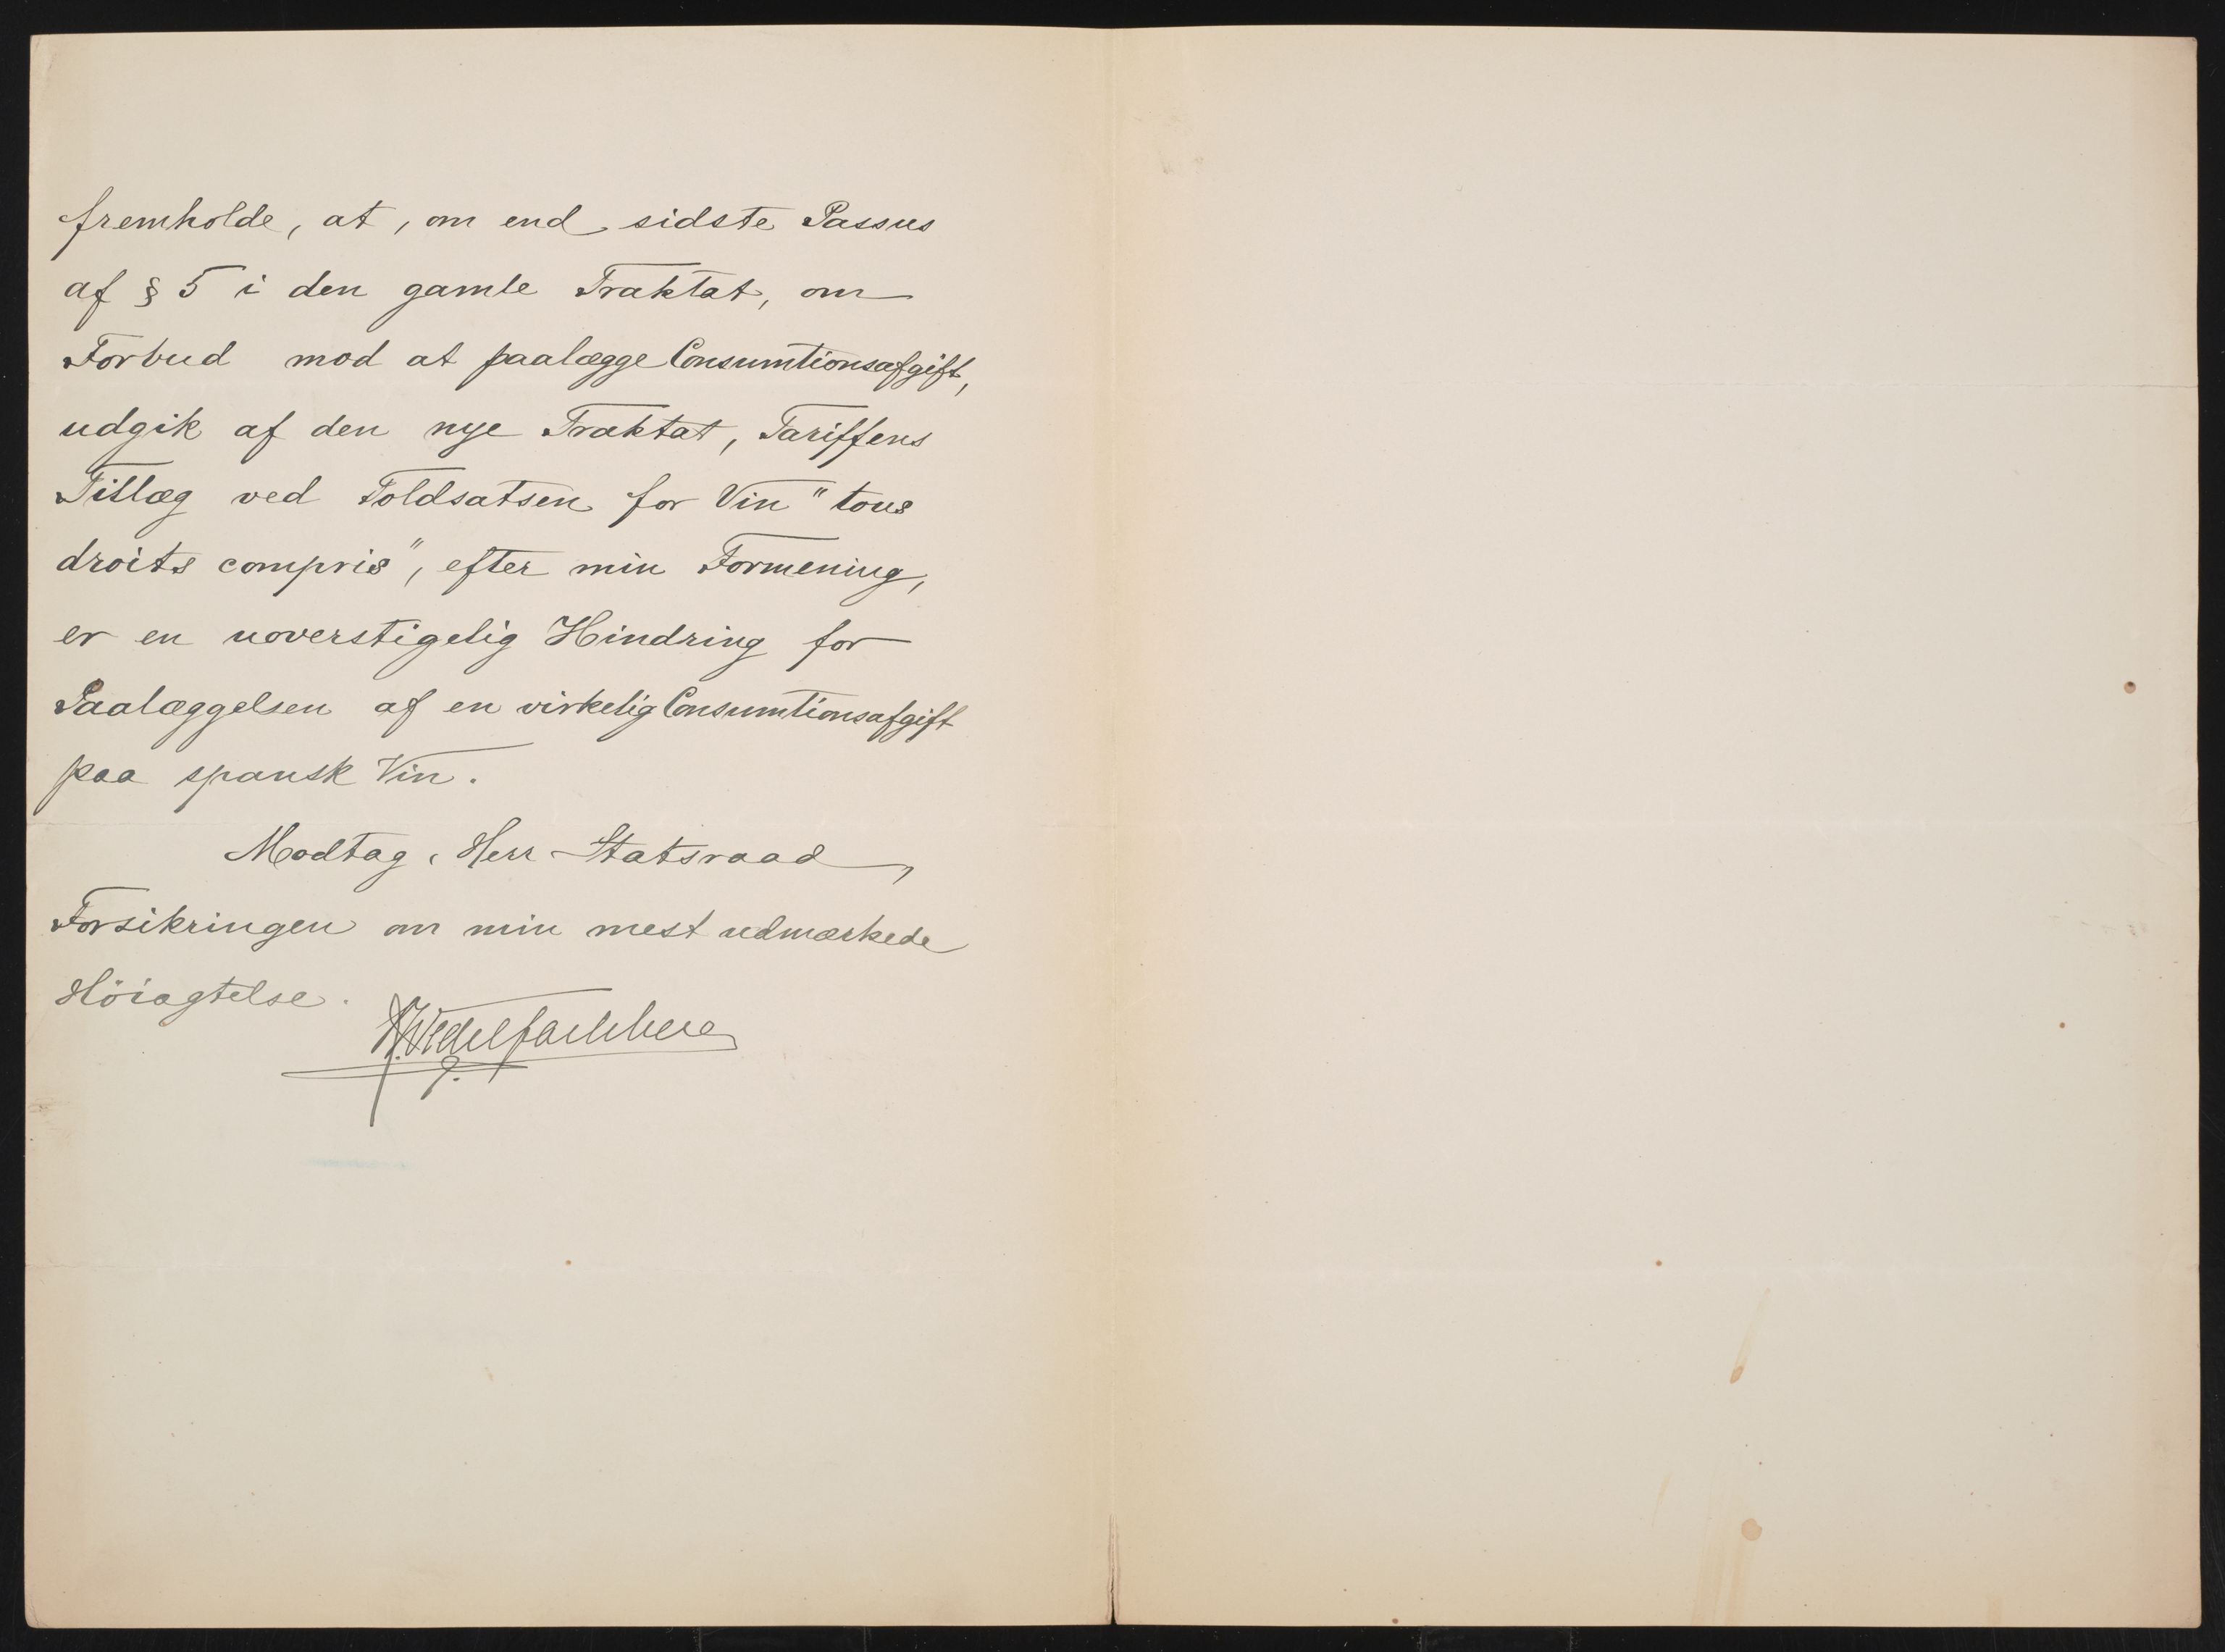 fremholde, at, om end sidste Passus
af § 5 i den gamle Traktat, om
Forbud mod at paalægge Consumtionsafgift,
udgik af den nye Traktat, Tariffens
Tillæg ved Toldsatsen for Vin "tous
droits compris", efter min Formening,
er en uoverstigelig Hindring for
Paalæggelsen af en virkelig Consumtionsafgift
paa spansk Vin.
Modtag, Herr Statsraad,
Forsikringen om min mest udmærkede
Höiagtelse.
F. Wedel Jarlsberg